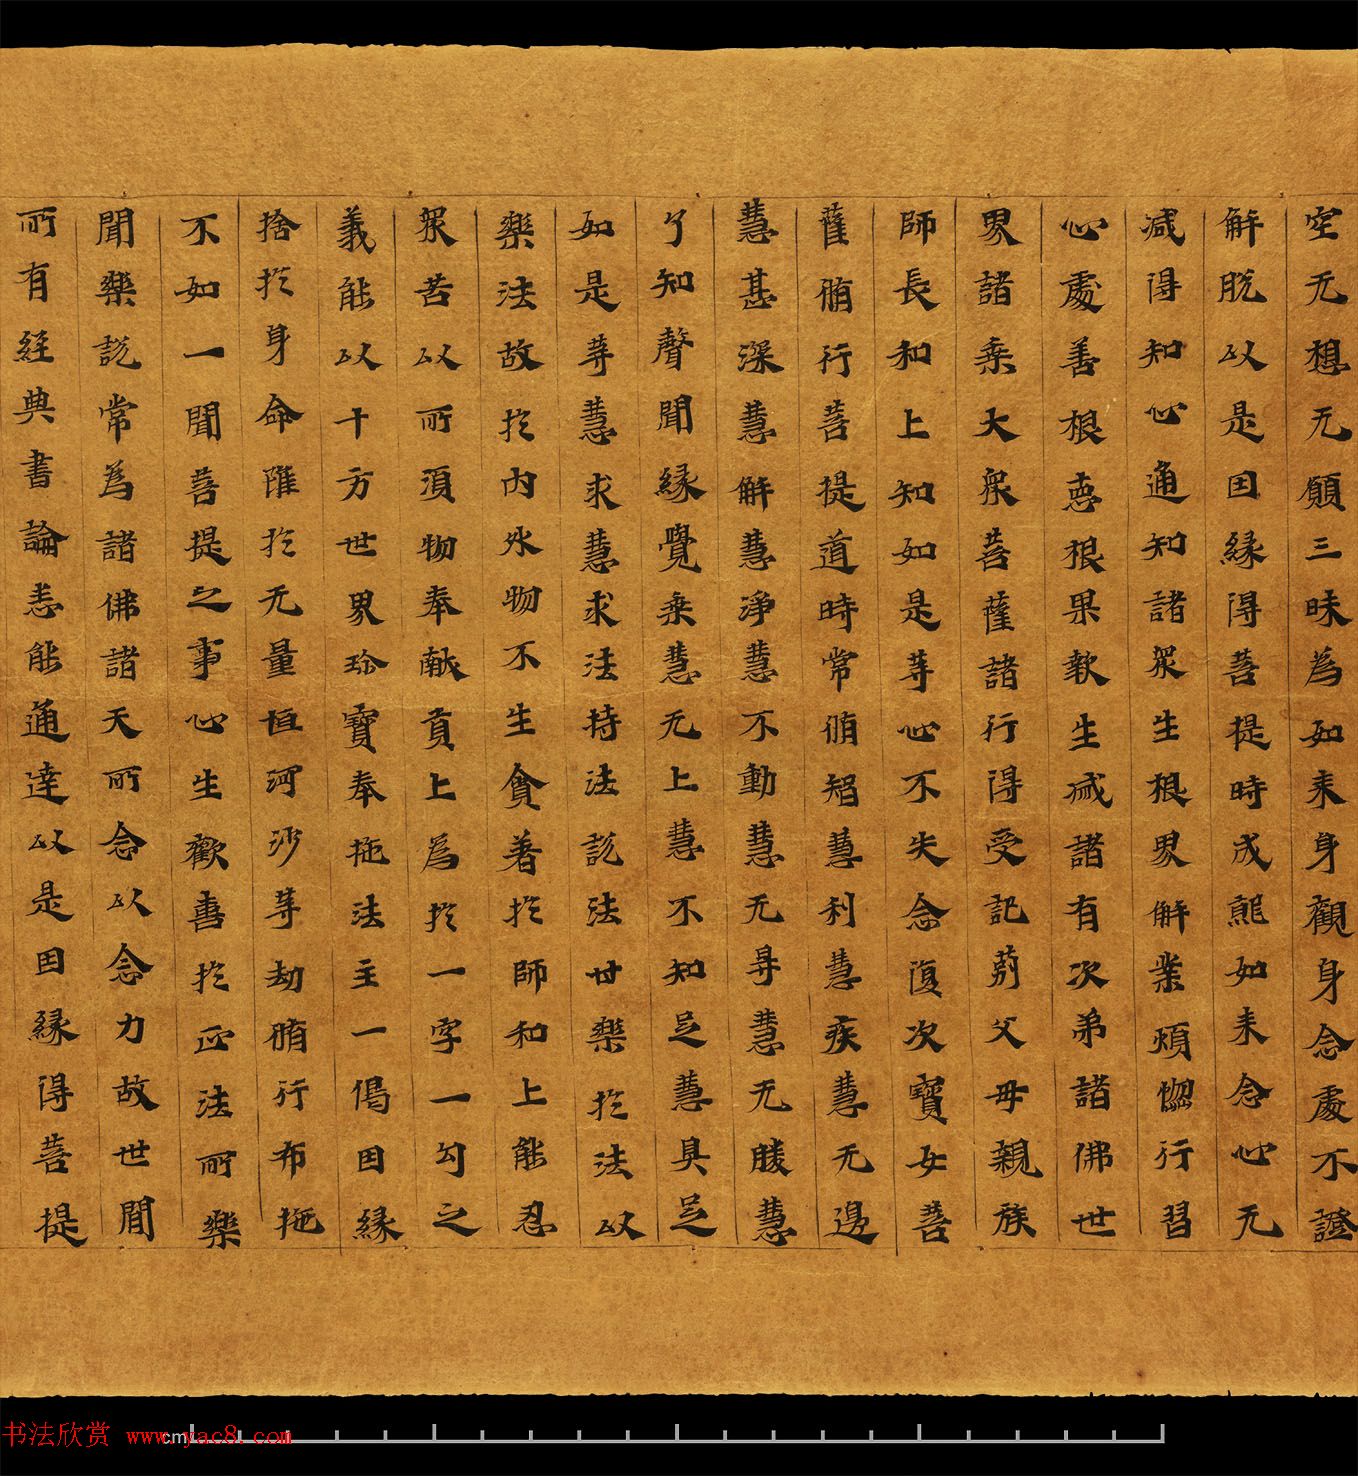 空无想无願三昧為如来身觀身念處不證
解脱以是因縁得菩提時成熊如来念心无
减得知心通知諸衆生根界解業煩惱行習
心處善根惡根果軟生滅諸有次弟諸佛世
界諸乗大衆菩薩諸行得受記莂父母親族
師長和上知如是等心不失念復次寶女菩
薩脩行菩提道時常脩智慧利慧疾慧无邊
慧甚深慧解慧淨慧不動慧无㝵慧无勝慧
了知聲聞縁覺乗慧无上慧不知足慧具足
如是等慧求慧求法持法說法世樂於法以
樂法故於内外物不生貪著於師和上能忍
衆苦以所湏物奉献貢上為於一字一句之
義能以十方世界珎寶奉施法主一偈因縁
捨於身命雖於无量恒河沙等劫脩行布施
不如一聞菩提之事心生歡喜於正法所樂
聞樂說常為諸佛諸天所念以念力故世間
所有經典書論悉能通達以是因縁得菩提
cm
书法欣赏 www.yac8.com